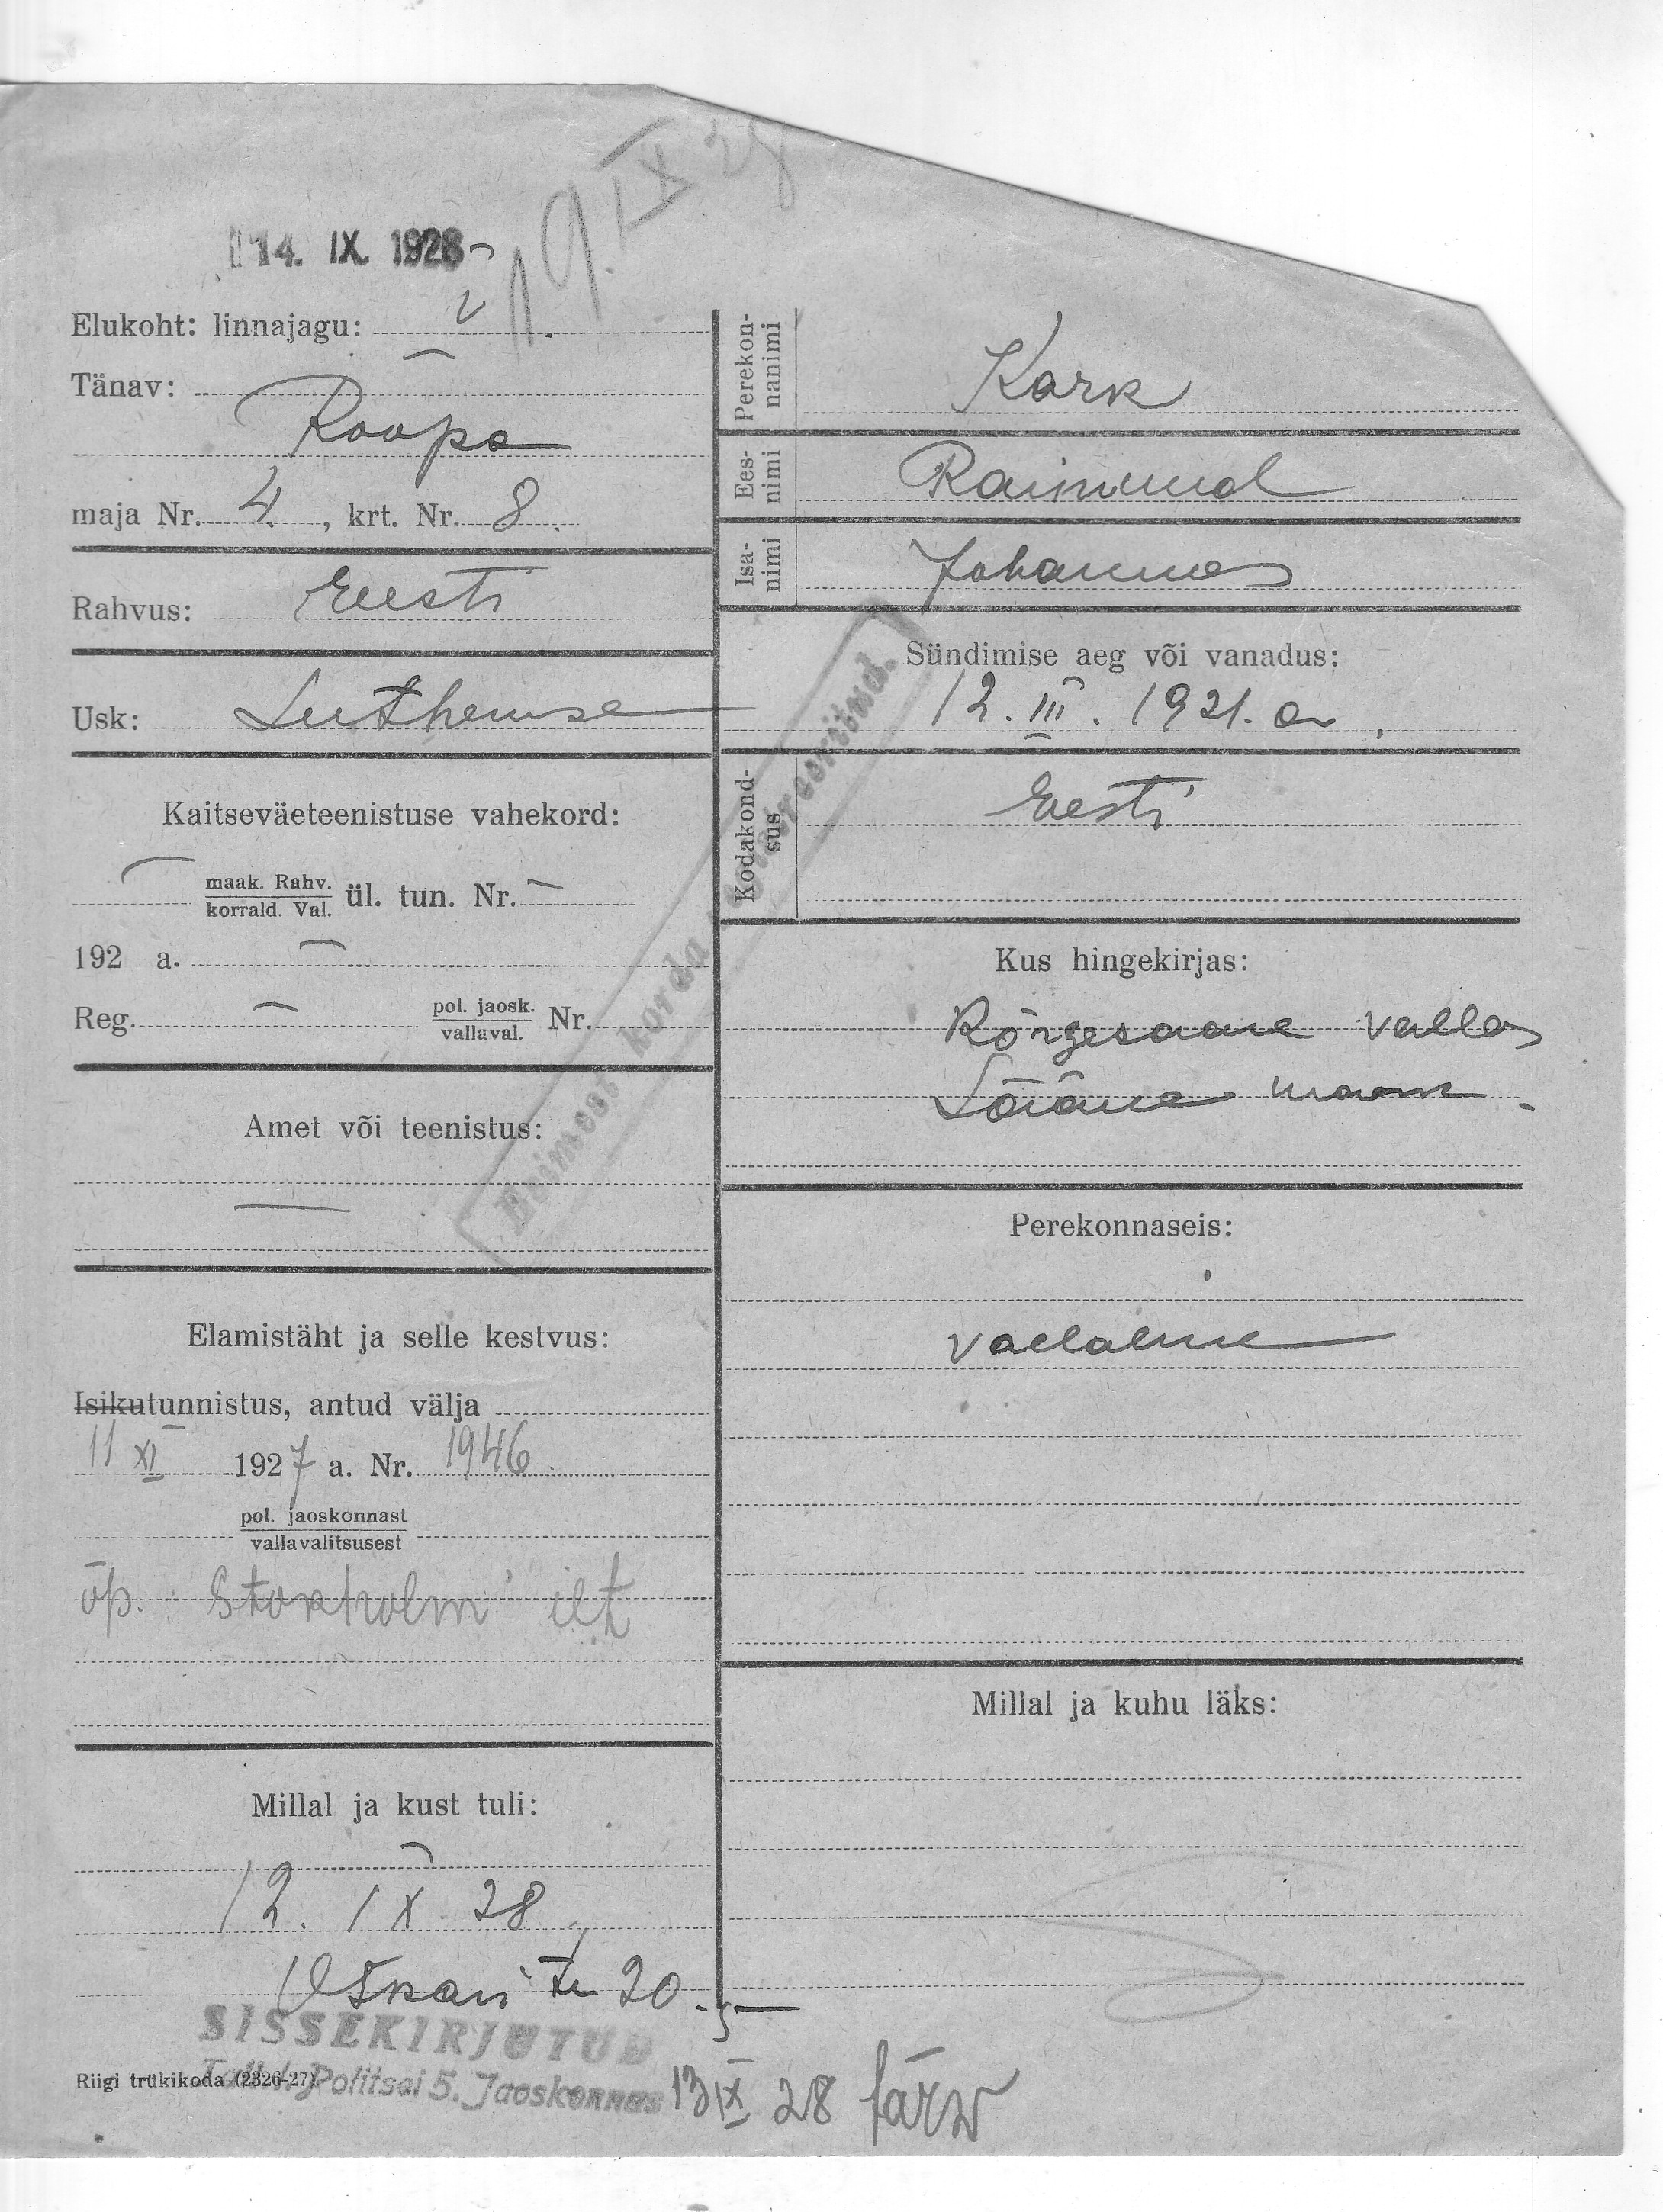 19. IX 28
14. IX. 1928
Elukoht: linnajagu: V
Tänav:
Roopa
maja Nr. 4. , krt. Nr. 8.
Rahvus: Eesti
Usk: Lutheruse
Kaitseväeteenistuse vahekord:
maak. Rahv.
korrald. Val. ül. tun. Nr. —
192 a. —
Reg. — pol. jaosk.
vallaval. Nr.
Amet või teenistus:
—
Elamistäht ja selle kestvus:
Isikutunnistus, antud välja
11 XI 1927 a. Nr. 1946
pol. jaoskonnast
vallavalitsusest
Millal ja kust tuli:
12. IX 28
20.
SISSEKIRJUTUD
Riigi trükikoda (2326-27)
Tall. Politsei 5. Jaoskonnas 13 IX 28
Perekon-
nanimi
Kark
Ees-
nimi
Raimund
Isa-
nimi
Johannes
Sündimise aeg või vanadus:
12. III. 1921. a
Kodakond-
sus
Eesti
Esimest korda registreeritud.
Kus hingekirjas:
Kõrgesaare vallas
Lääne maak.
Perekonnaseis:
vallaline
Millal ja kuhu läks: